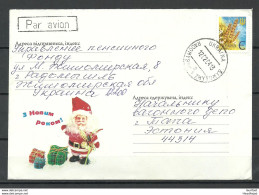 Par avion
Адреса відправника, індекс
Управление пенсионного
Фонду
ул Житомирская, 8
г Радомышль
Житомирская обл
Украина
З Новим
роком!
Адреса одержувача, індекс
Начальнику
вагонного депо
г Тапа
Эстония
44314